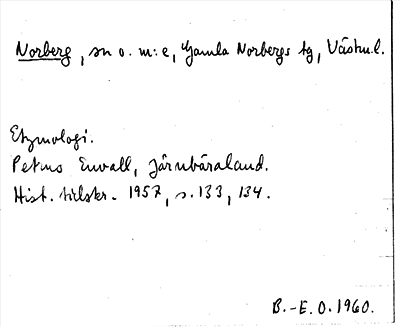 Norberg, sn o. m:e, Gamla Norbergs tg, Västm.l.
Etymologi.
Petrus Envall, Järnbäraland.
Hist. tidskr. 1957, s. 133, 134.
B.-E. O. 1960.